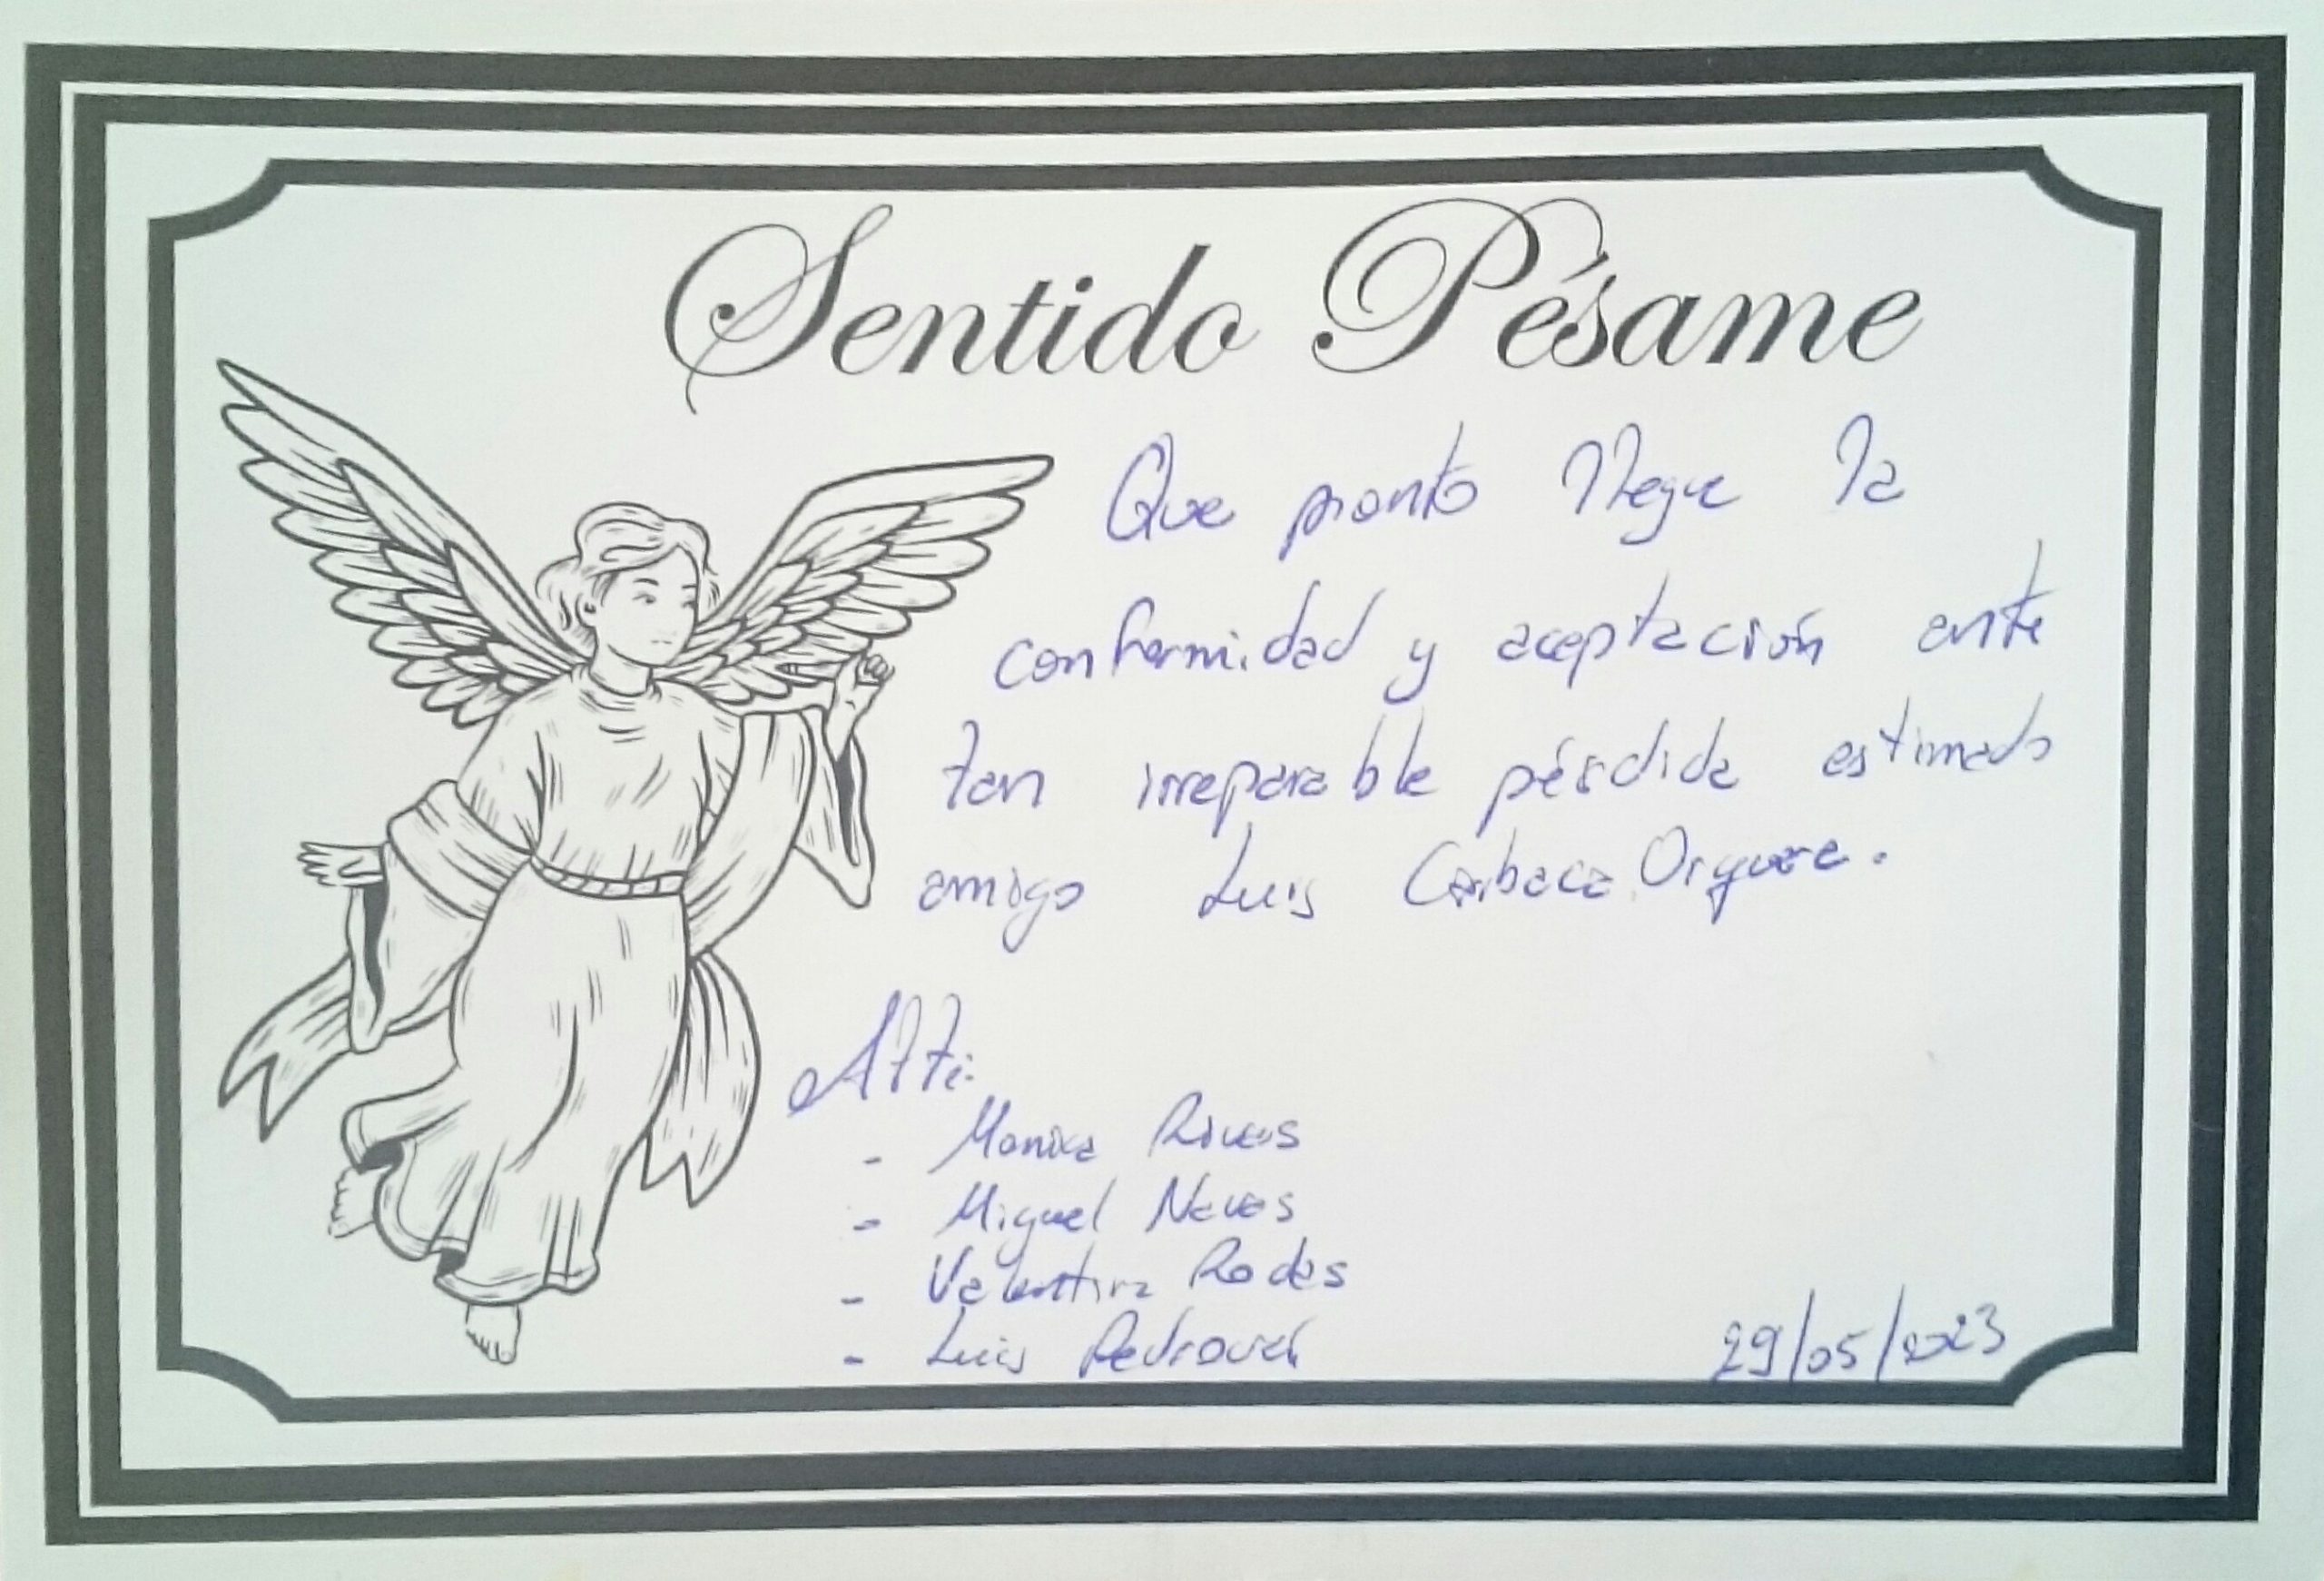 Sentido Pésame
Que pronto llegue la
conformidad y aceptación ante
tan irreparable pérdida estimado
amigo Luis Carbaca Orguera.
Att:
- Monica Rivas
- Miguel Navas
- Valentina Rodas
- Luis
29/05/2023